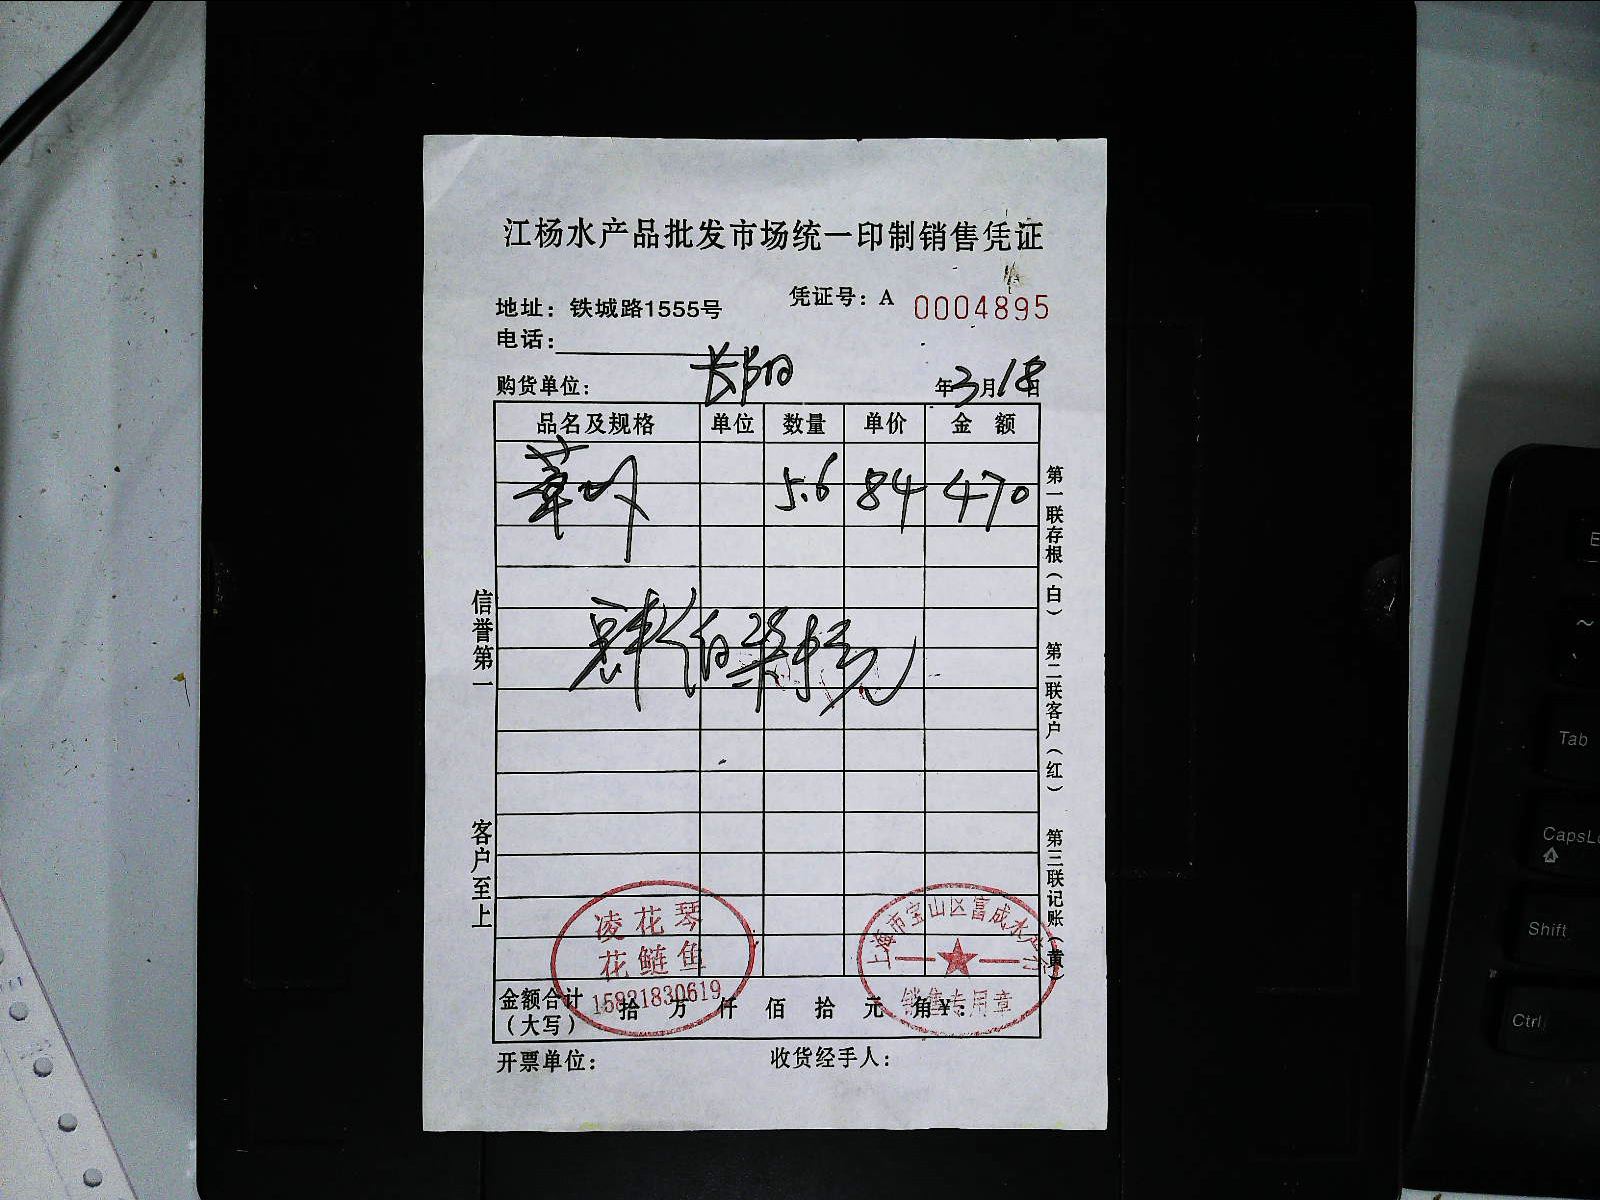 江杨水产品批发市场统一印制销售凭证
地址：铁城路1555号
凭证号：A 0004895
电话：
购货单位： 长阳
年3月18日
品名及规格 单位 数量 单价 金额
草 5.6 84 470
肆佰柒拾元
信誉第一
客户至上
第一联存根（白）
第二联客户（红）
第三联记账（黄）
凌花琴
花鲢鱼
15821830619
上海市宝山区富成水产行
销售专用章
金额合计（大写） 拾 万 仟 佰 拾 元 角 ¥：
开票单位：
收货经手人：
E
~
Tab
CapsLo
Shift
Ctrl